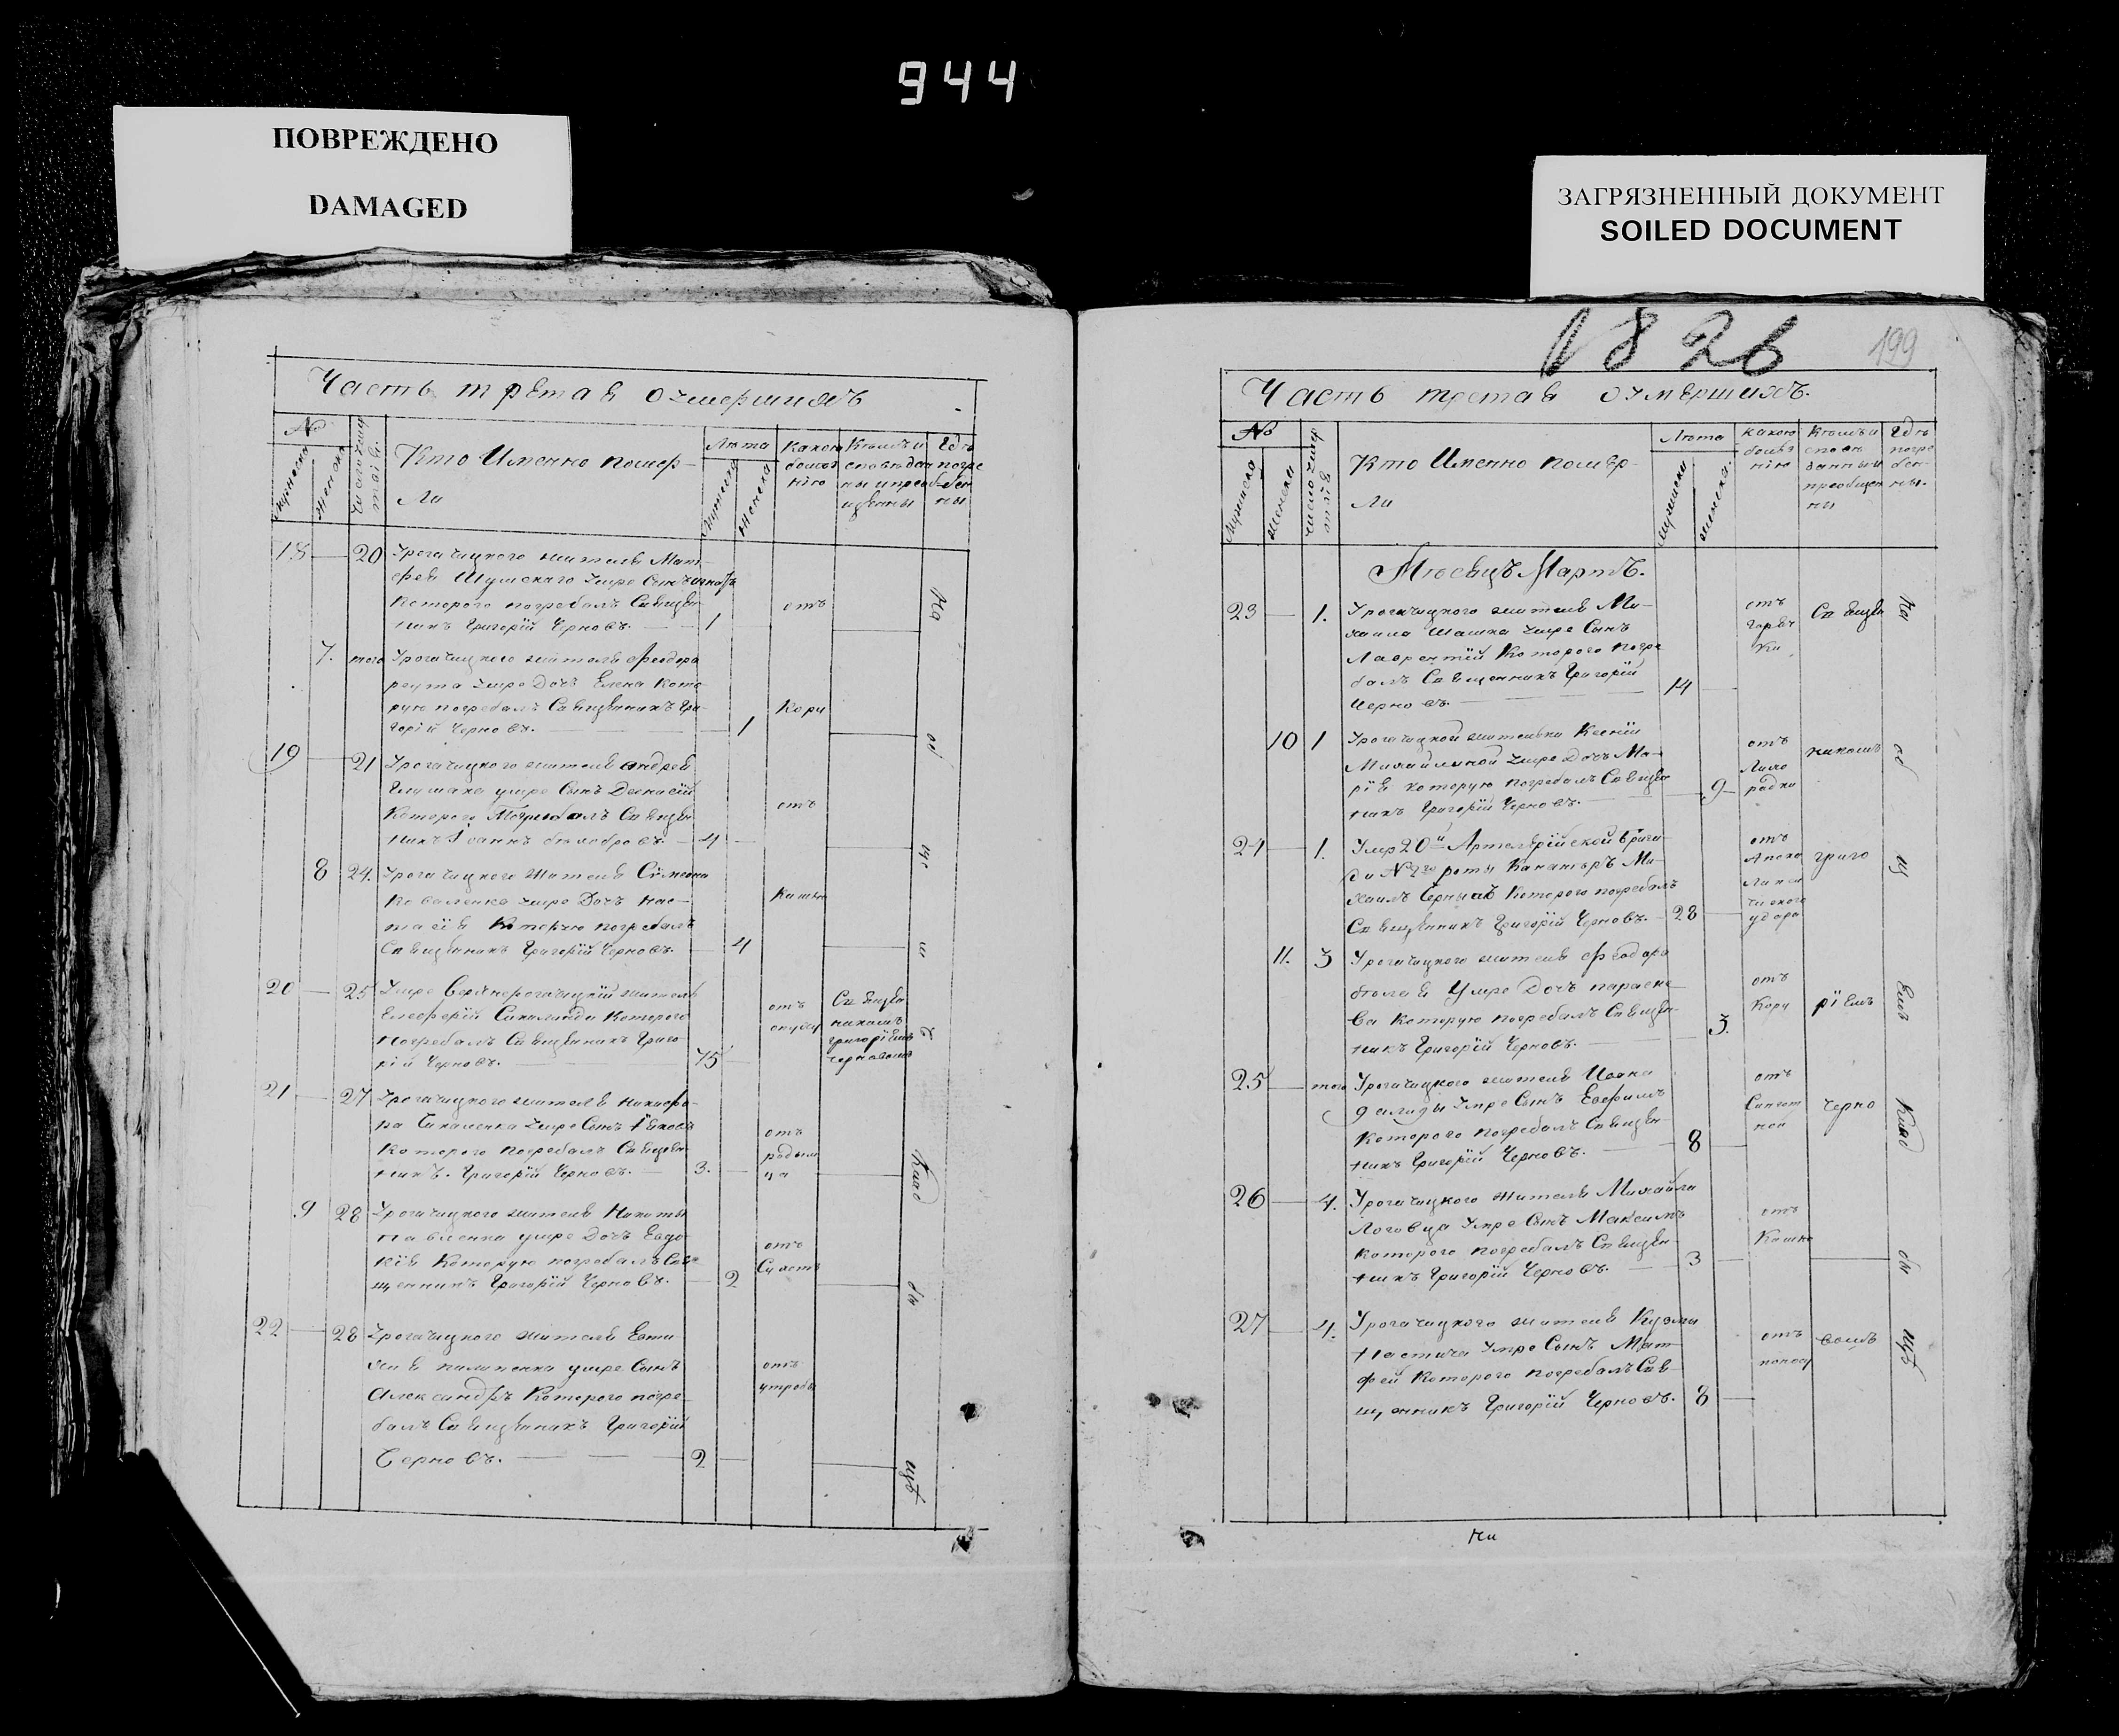 944
ПОВРЕЖДЕНО
DAMAGED
ЗАГРЯЗНЕННЫЙ ДОКУМЕНТ
SOILED DOCUMENT
1826
199
Часть третая о умершихъ
№
Мужеска
Женска
Кто Именно померли
Лета
Мужеска
Женска
Какою болезнію
Кемъ и исповеданны и пріобщенны
Где погребенны
18 20 Урогачицкого жителя Мат
фея Шумскаго умре Сынъ
Которого погребалъ Священ
никъ Григорій Черновъ. 1
отъ
7. того Урогачицкого жителя Феодора
реута умре Дочь Елена Кото
рую погребалъ Священникъ Гри
горій Черновъ. 1
Кори
19 21 Урогачицкого жителя Андрея
Глушака умре Сынъ
Которого Погребалъ Священ
никъ Іоаннъ белобровъ. 4
отъ
8 24. Урогачицкого Жителя Сімеона
Коваленка умре Дочь Нас
тасія Которую погребалъ
Священникъ Григорій Черновъ. 4
Кашлю
20 25 Умре Верхнерогачицкій житель
Елефферій Которого
погребалъ Священникъ Григо
рій Черновъ. 75
отъ
Священ
никомъ
Григоріемъ
Черновымъ
21 27 Урогачицкого жителя Никифо
ра умре Сынъ Іяковъ
Которого погребалъ Священ
никъ. Григорій Черновъ. 3.
отъ
родим
ца
9 28 Урогачицкого жителя Никиты
павленка умре Дочь Евдо
кія Которую погребалъ Свя
щенникъ Григорій Черновъ. 2
отъ
Сухотъ
22 28 Урогачицкого жителя Евти
хія пилипенка умре Сынъ
Александръ Которого погре
балъ Священникъ Григорій
Черновъ. 2
отъ
утробы
На
об
ще
м
ъ
Клад
би
щѣ
Часть третая о умершихъ.
№
Мужеска
Женска
Кто Именно помер
ли
Лета
Мужеска
Женска
Какою болезнію
Кемъ и исповеданны и пріобщенны
Где погребенны.
Месяцъ Мартъ.
23 1. Урогачицкого жителя Ми
хаила Шашка умре Сынъ
Лаврентій Которого погре
балъ Священникъ Григорій
Черновъ. 14
отъ
Горяч
ки
Священ
10 1 Урогачицкой жителки Ксеніи
Михайлиной умре Дочь Ма
рія которую погребалъ Священ
никъ Григорій Черновъ. 9
отъ
Лихо
радки
никомъ
24 1. Умре 20й Артилерійской брига
ды № 2го роты Канонеръ Ми
хаилъ Чернаив Которого погребалъ
Священникъ Григорій Черновъ. 28
отъ
Апоко
лепси
ческого
удара
григо
11. 3 Урогачицкого жителя Феодора
белая Умре Дочь параске
ва Которую погребалъ Священ
никъ Григорій Черновъ. 3.
отъ
Кори
ріемъ
25 того Урогачицкого жителя Ивана
умре Сынъ Евфимъ
Которого погребалъ Священ
никъ Григорій Черновъ. 8
отъ
Черно
26 4. Урогачицкого жителя Михайла
Логовца Умре Сынъ Максимъ
Которого погребалъ Священ
никъ Григорій Черновъ. 3
отъ
Кашлю
27 4. Урогачицкого жителя Кузмы
умре Сынъ Мат
фей Которого погребалъ Свя
щенникъ Григорій Черновъ. 8
отъ
поносу
вымъ
На
об
щ
емъ
Клад
би
щѣ